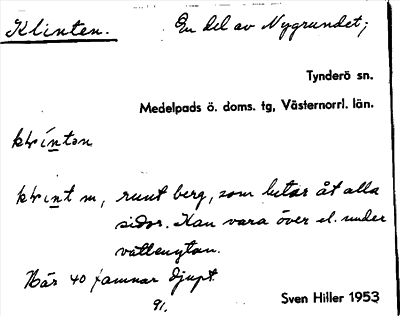 Klinten. En del av Nygrundet;
Tynderö sn.
Medelpads ö. doms. tg, Västernorrl. län.
klintən
klint m, runt berg, som lutar åt alla
sidor. Kan vara över el. under
vattenytan.
Här 40 famnar djupt.
91.
Sven Hiller 1953